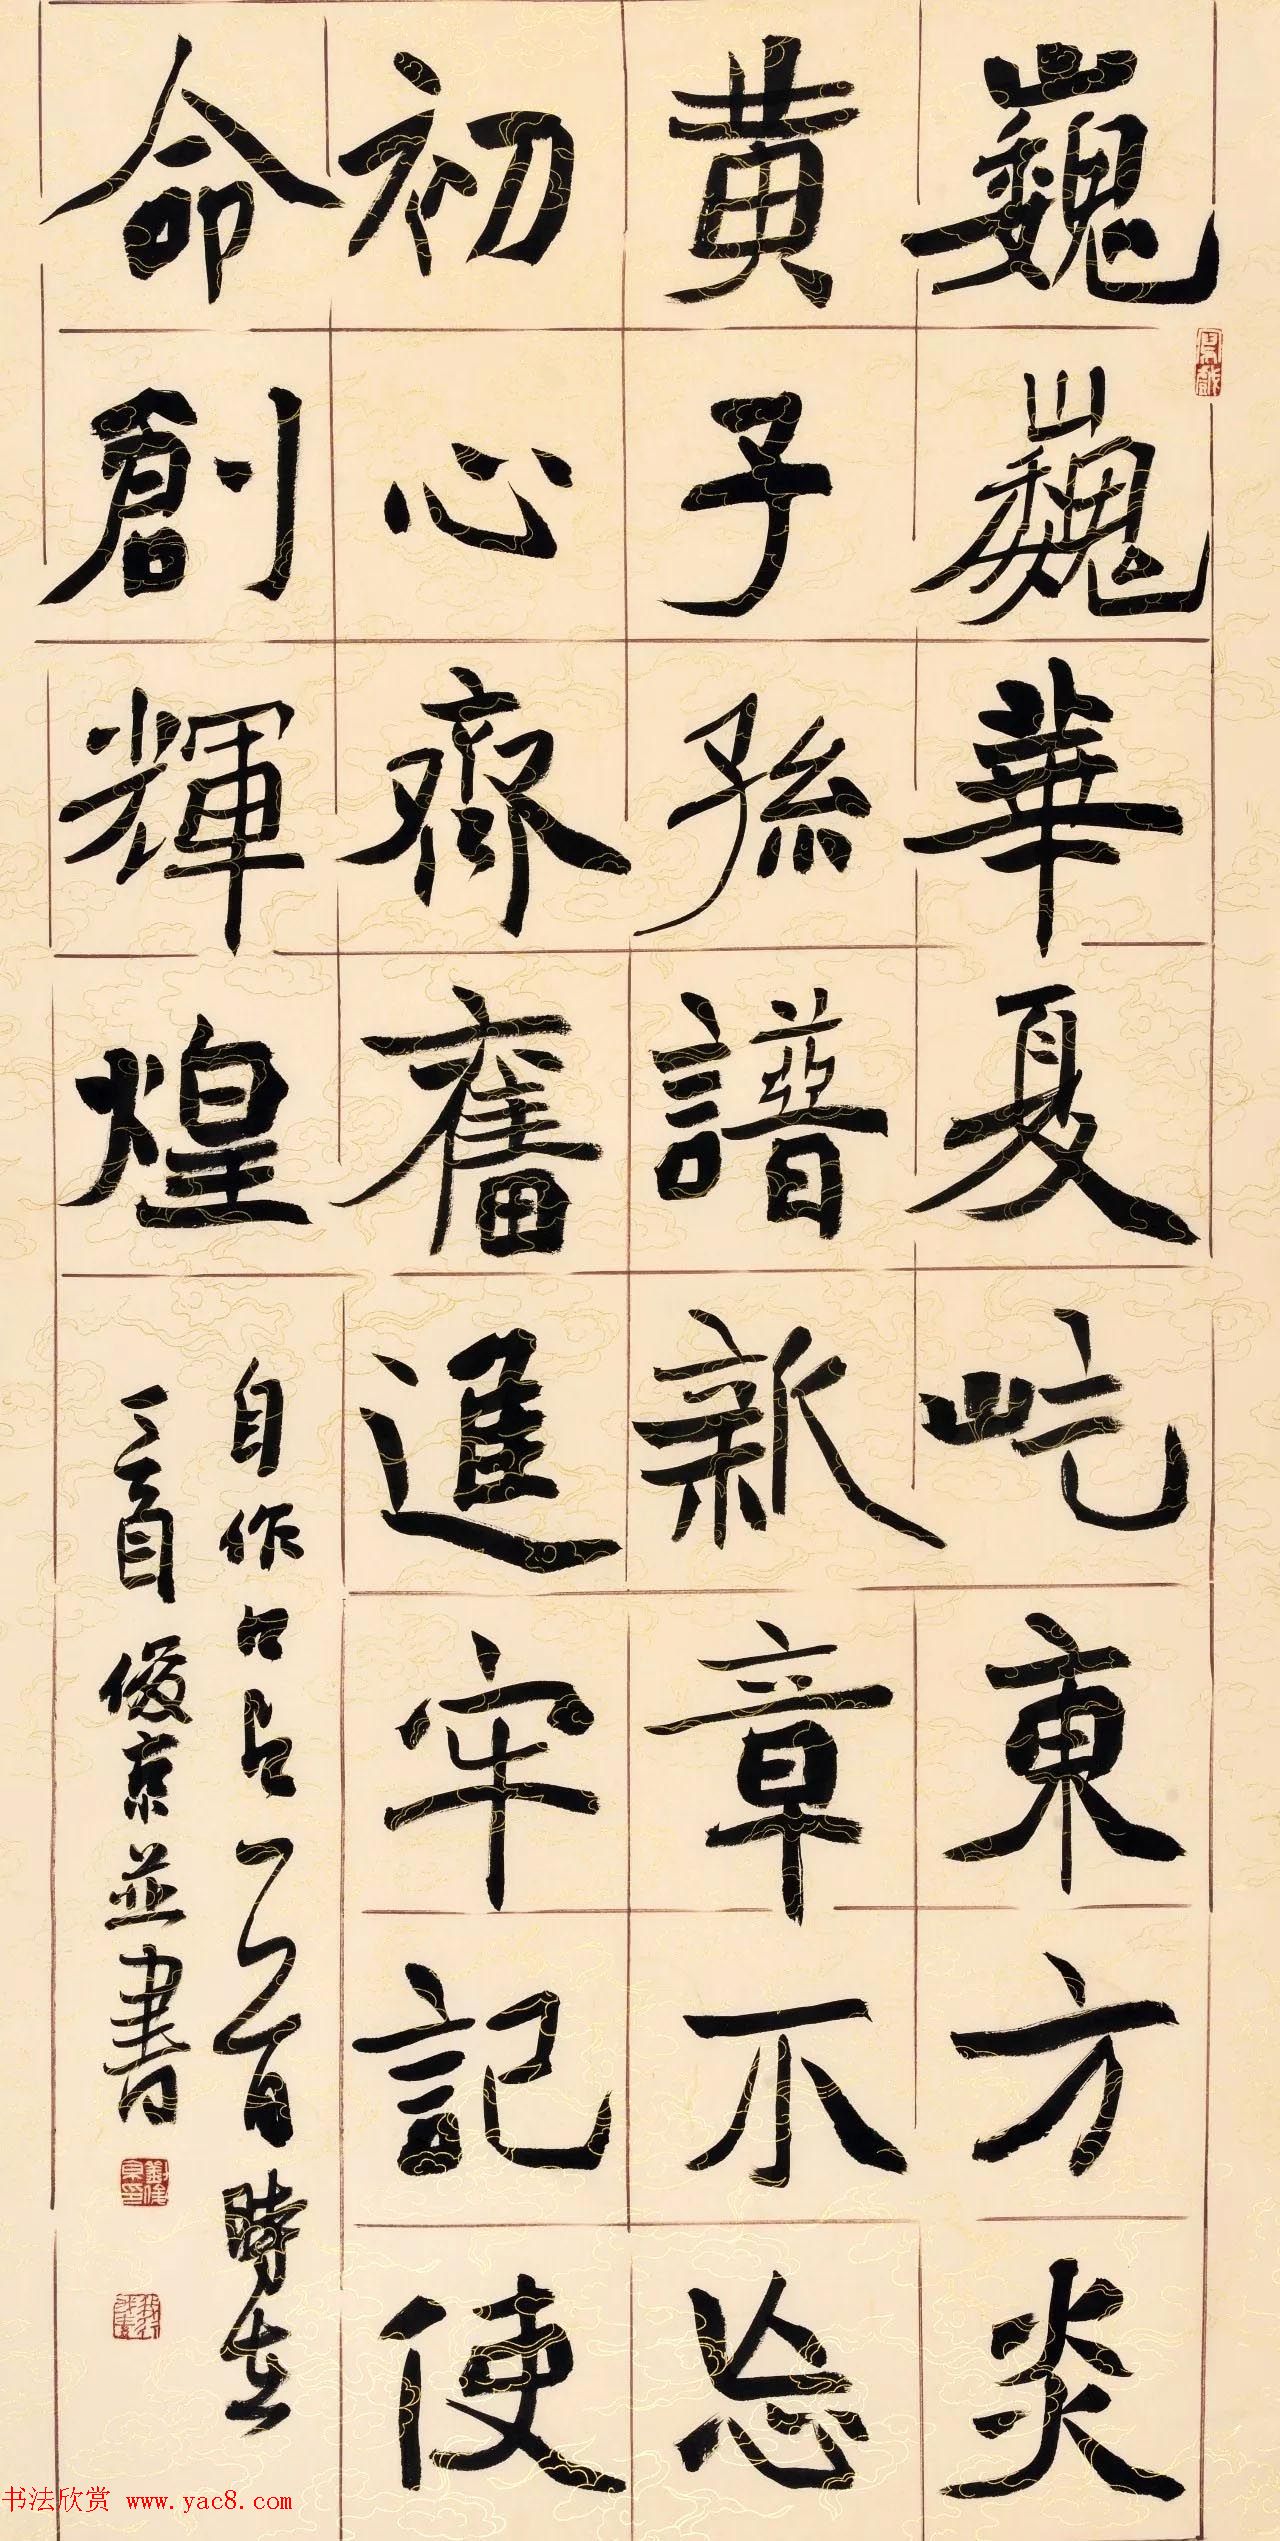 巍巍華夏屹東方炎
黄子孫譜新章不忘
初心齊奮進牢記使
命創輝煌
自作口占一首時在
俊京並書
劉俊京印
书法欣赏 www.yac8.com